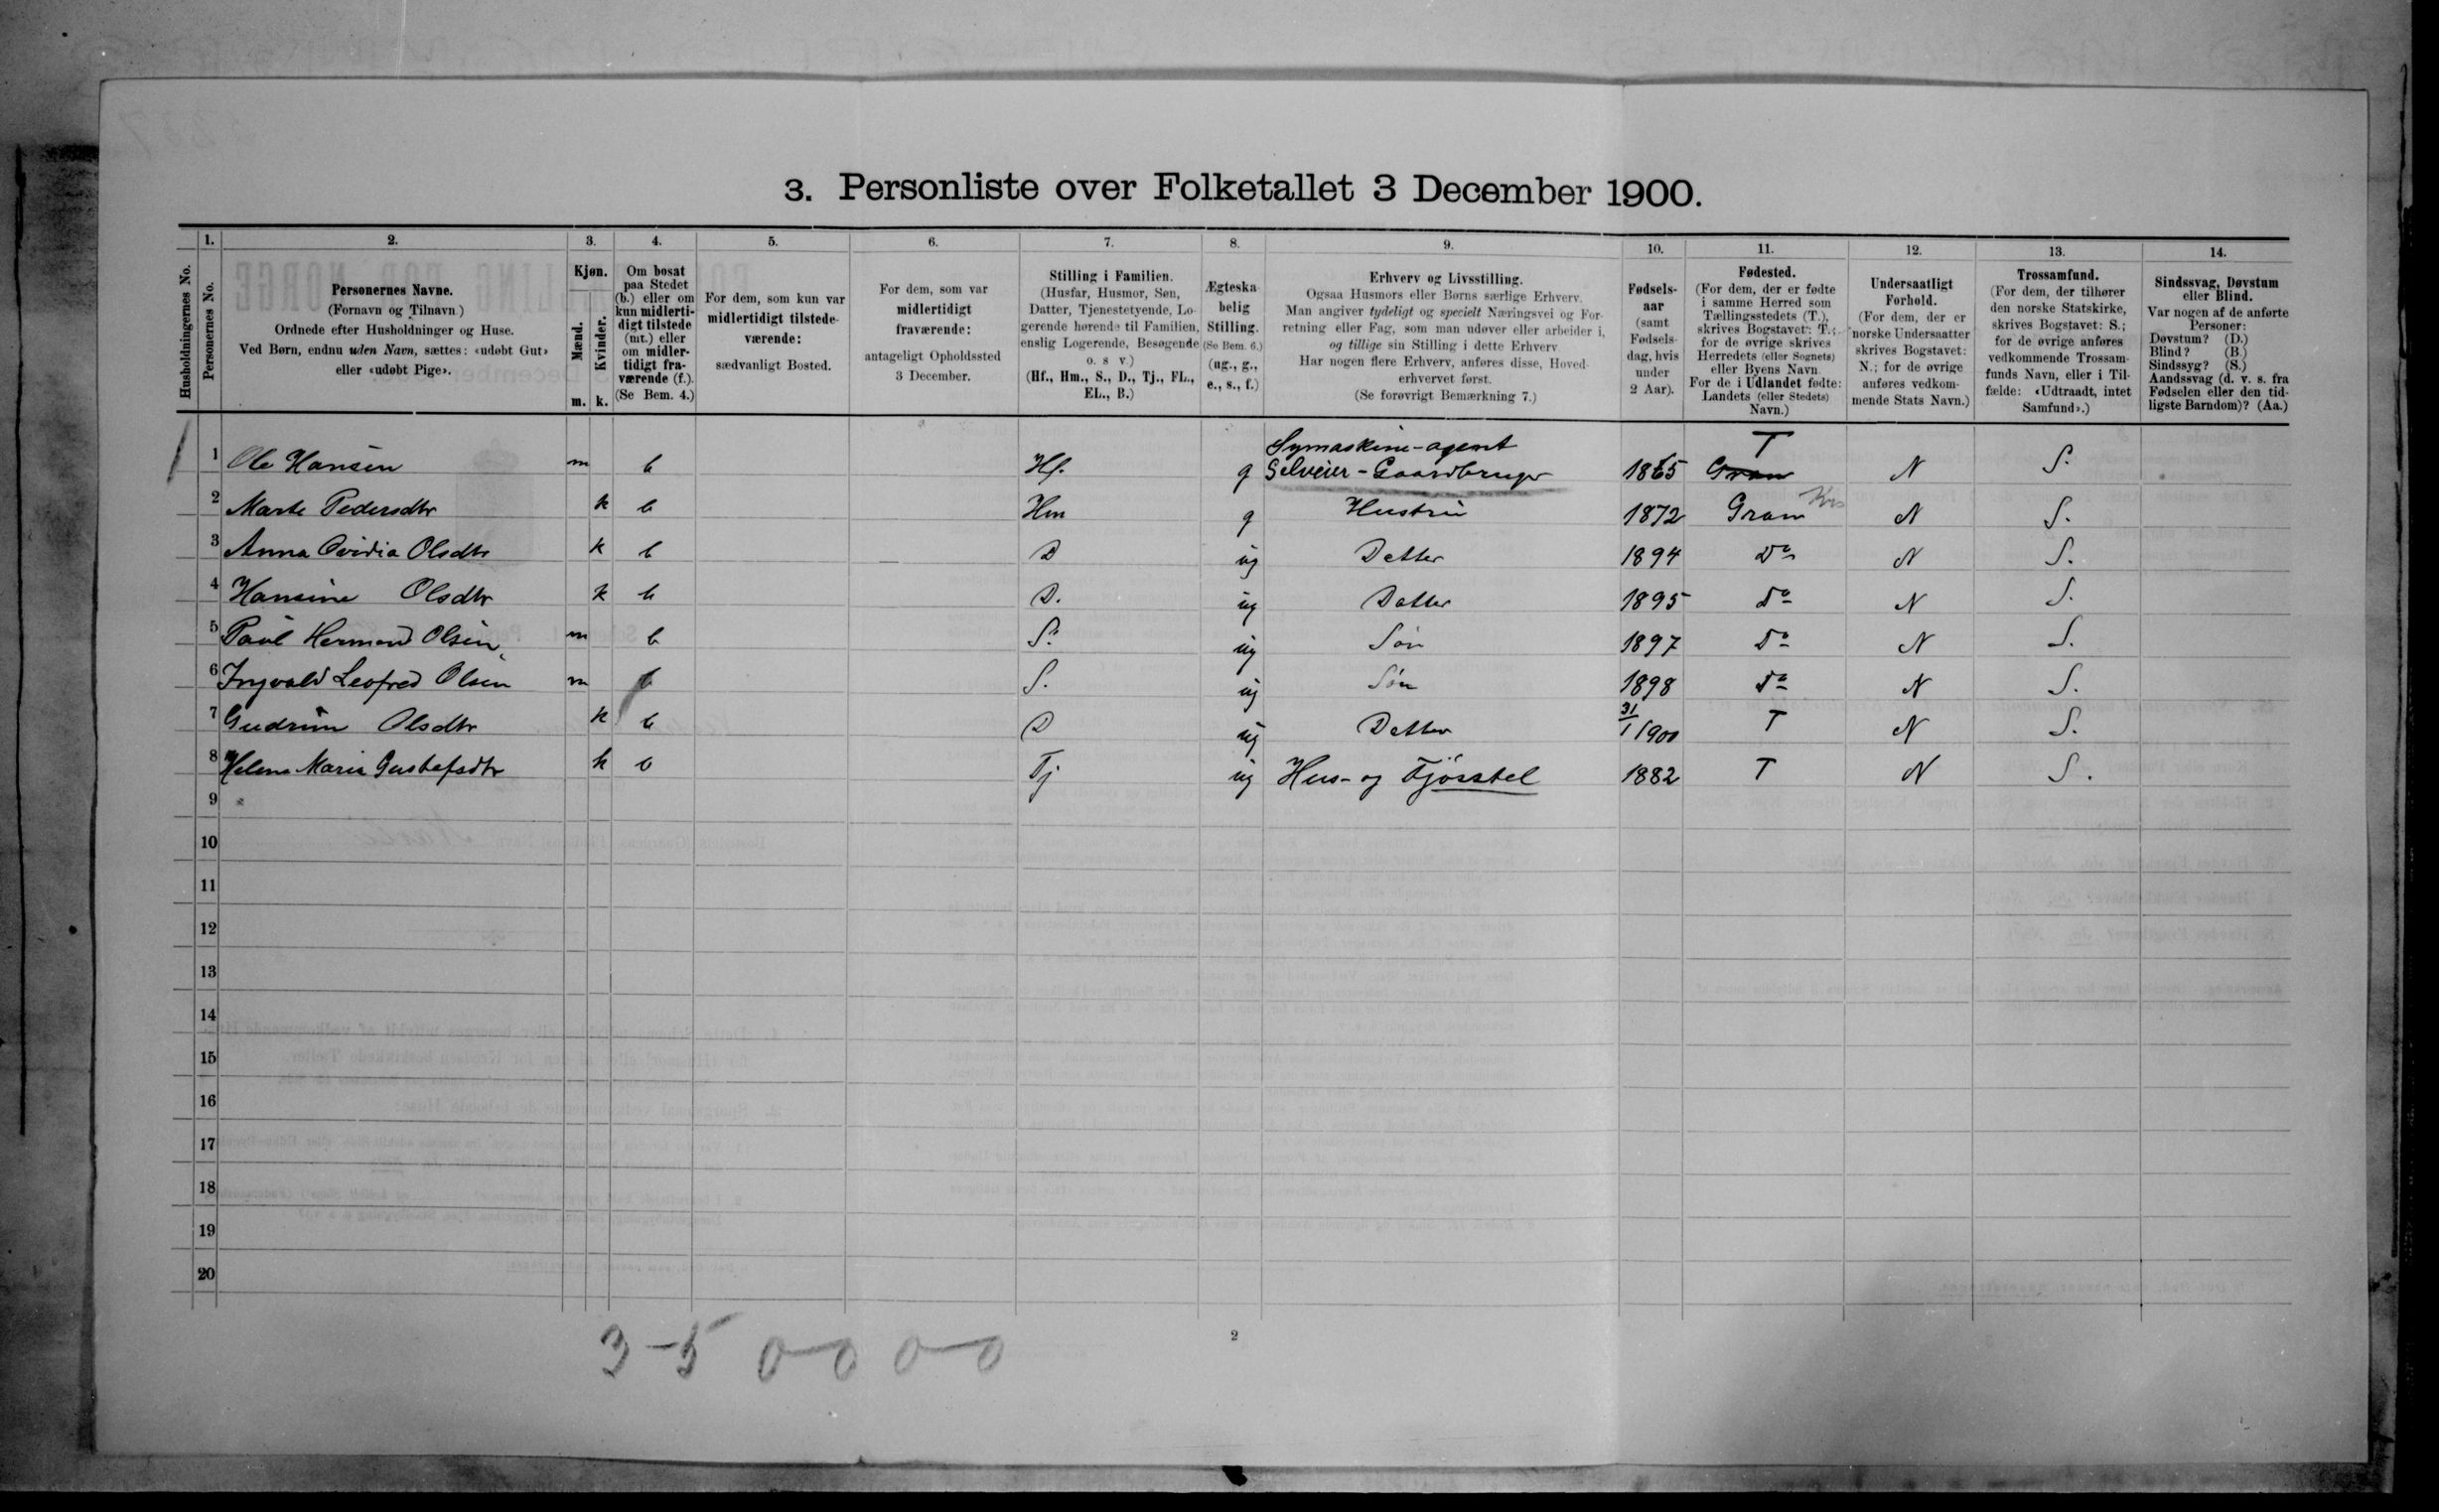 3. Personliste over Folketallet 3 December 1900.
Husholdningernes No.
1.
Personernes No.
2.
Personernes Navne.
(Fornavn og Tilnavn)
Ordnede efter Husholdninger og Huse.
Ved Børn, endnu uden Navn, sættes: «udøbt Gut»
eller «udøbt Pige».
3.
Kjøn.
Mænd.
Kvinder.
m. k.
4.
Om bosat
paa Stedet
(b.) eller om
kun midlerti-
digt tilstede
(mt.) eller
om midler-
tidigt fra-
værende (f.).
(Se Bem. 4.)
5.
For dem, som kun var
midlertidigt tilstede-
værende:
sædvanligt Bosted.
6.
For dem, som var
midlertidigt
fraværende:
antageligt Opholdssted
3 December.
7.
Stilling i Familien.
(Husfar, Husmor, Søn,
Datter, Tjenestetyende, Lo-
gerende hørende til Familien,
enslig Logerende, Besøgende
o. s v.)
(Hf., Hm., S., D., Tj., FL.,
EL., B.)
8.
Ægteska-
belig
Stilling.
(Se Bem. 6.)
(ug., g.,
e., s., f.)
9.
Erhverv og Livsstilling.
Ogsaa Husmors eller Børns særlige Erhverv.
Man angiver tydeligt og specielt Næringsvei og For-
retning eller Fag, som man udøver eller arbeider i,
og tillige sin Stilling i dette Erhverv
Har nogen flere Erhverv, anføres disse, Hoved-
erhvervet først.
(Se forøvrigt Bemærkning 7.)
10.
Fødsels-
aar
(samt
Fødsels-
dag, hvis
under
2 Aar).
11.
Fødested.
(For dem, der er fødte
i samme Herred som
Tællingsstedets (T.),
skrives Bogstavet: T.;
for de øvrige skrives
Herredets (eller Sognets)
eller Byens Navn
For de i Udlandet fødte:
Landets (eller Stedets)
Navn.)
12.
Undersaatligt
Forhold.
(For dem, der er
norske Undersaatter
skrives Bogstavet:
N.; for de øvrige
anføres vedkom-
mende Stats Navn.)
13.
Trossamfund.
(For dem, der tilhører
den norske Statskirke,
skrives Bogstavet: S.;
for de øvrige anføres
vedkommende Trossam-
funds Navn, eller i Til-
fælde: «Udtraadt, intet
Samfund».)
14.
Sindssvag, Døvstum
eller Blind.
Var nogen af de anførte
Personer:
Døvstum? (D.)
Blind? (B)
Sindssyg? (S.)
Aandssvag (d. v. s. fra
Fødselen eller den tid-
ligste Barndom)? (Aa.)
Symaskine-agent T
1 Ole Hansen m b Hf. g Selveier-Gaardbruger 1865 Gran N S.
2 Marte Pedersdtr k b Hm g Hustru 1872 Gran N S.
3 Anna Ovidia Olsdtr k b D ug Datter 1894 Do N S.
4 Hansine Olsdtr k b D. ug Datter 1895 Do N S.
5 Paul Herman Olsen m b S. ug Søn 1897 Do N S.
6 Ingvald Leofred Olsen m b S. ug Søn 1898 Do N S.
7 Gudrun Olsdtr k b D ug Datter 31/1 1900 T N S.
8 Helene Marie Gustafsdtr k b Tj ug Hus- og Fjösstel 1882 T N S.
9
10
11
12
13
14
15
16
17
18
19
20
3-5 0-0 0-0
2